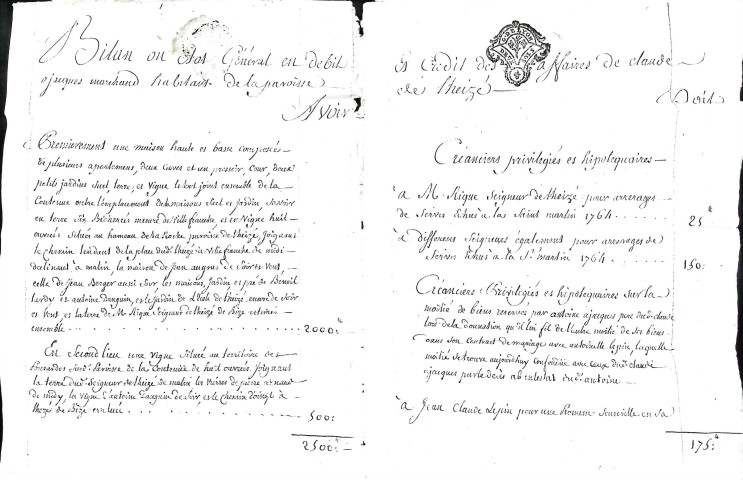 Bilan ou Etat Général en debit
ajaques marchand habitant de la paroisse
Avoir
Premierement une maison haute et basse composée
de plusieurs apartemens, deux Cuves et un pressoir, Cour, deux
petits jardins Suel, terre, et Vigne le tout joint ensemble de la
Contenue outre l'emplacement des maisons Suel et Jardin, Scavoir
en terre Six Bicherées mesure de Villefranche, et en Vigne huit
ouvrées Situés au hameau de la Roche paroisse de theizé, Joignant
le Chemin tendant de la place dud. theizé à Villefranche de midi
declinant à matin, la maison de Jean de Soir et Vent,
celle de Jean Berger aussi Sur les maisons, Jardin et pré de Benoit
et antoine Danguin, et le Jardin de de theizé, encore de Soir
et Vent, et la terre de M. Rique Seigneur de theizé de Bize estimés
ensemble 2000
En Second lieu une Vigne Située au territoire des
Sud. Paroisse de la Contenue de huit ouvrées, Joignant
la terre dud. Seigneur de theizé de matin les
de midy, la Vigne d'antoine Danguin de Soir et le Chemin d'oingt à
theizé de Bize evaluée 500
2500
Et Crédit des affaires de Claude
de theizé
Doit
Créanciers privilégiés et hipotequaires
à M. Rique Seigneur de theizé pour arrerages
de Servis Echus à la Saint martin 1764 25
à differens Seigneurs également pour arrerages de
Servis Echus à la St. martin 1764 150
Créanciers Privilégiés et hipotequaires Sur la
moitié de biens reservés par antoine ajaques pere dud. claude
lors de la donnation qu'il lui fit de l'autre moitié de Ses biens
dans Son Contrat de mariage avec antoinette lepin, laquelle
moitié se trouve aujourdhuy confondue avec ceux dud. claude
ajaques par le décés ab intestat dud. antoine
à Jean Claude Lepin pour une Promesse en Sa
175